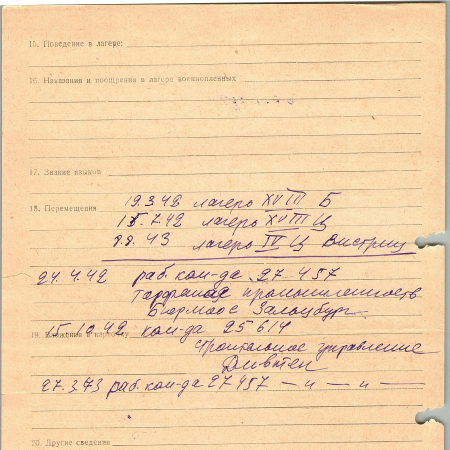 15. Поведение в лагере:
16. Наказания и поощрения в лагере военнопленных
17. Знание языков
18. Перемещения
19.3.42 лагерь XVIII Б
15.7.42 лагерь XVIII Ц
9.2.43 лагерь IV Ц Вистриц
24.4.42 раб. ком-да 27.457
торфяная промышленность
Бюрмоос Зальцбург
19.
15.10.42 ком-да 25614
строительное управление
27.3.43 раб. ком-да 27457 — „ — „ —
20. Другие сведения